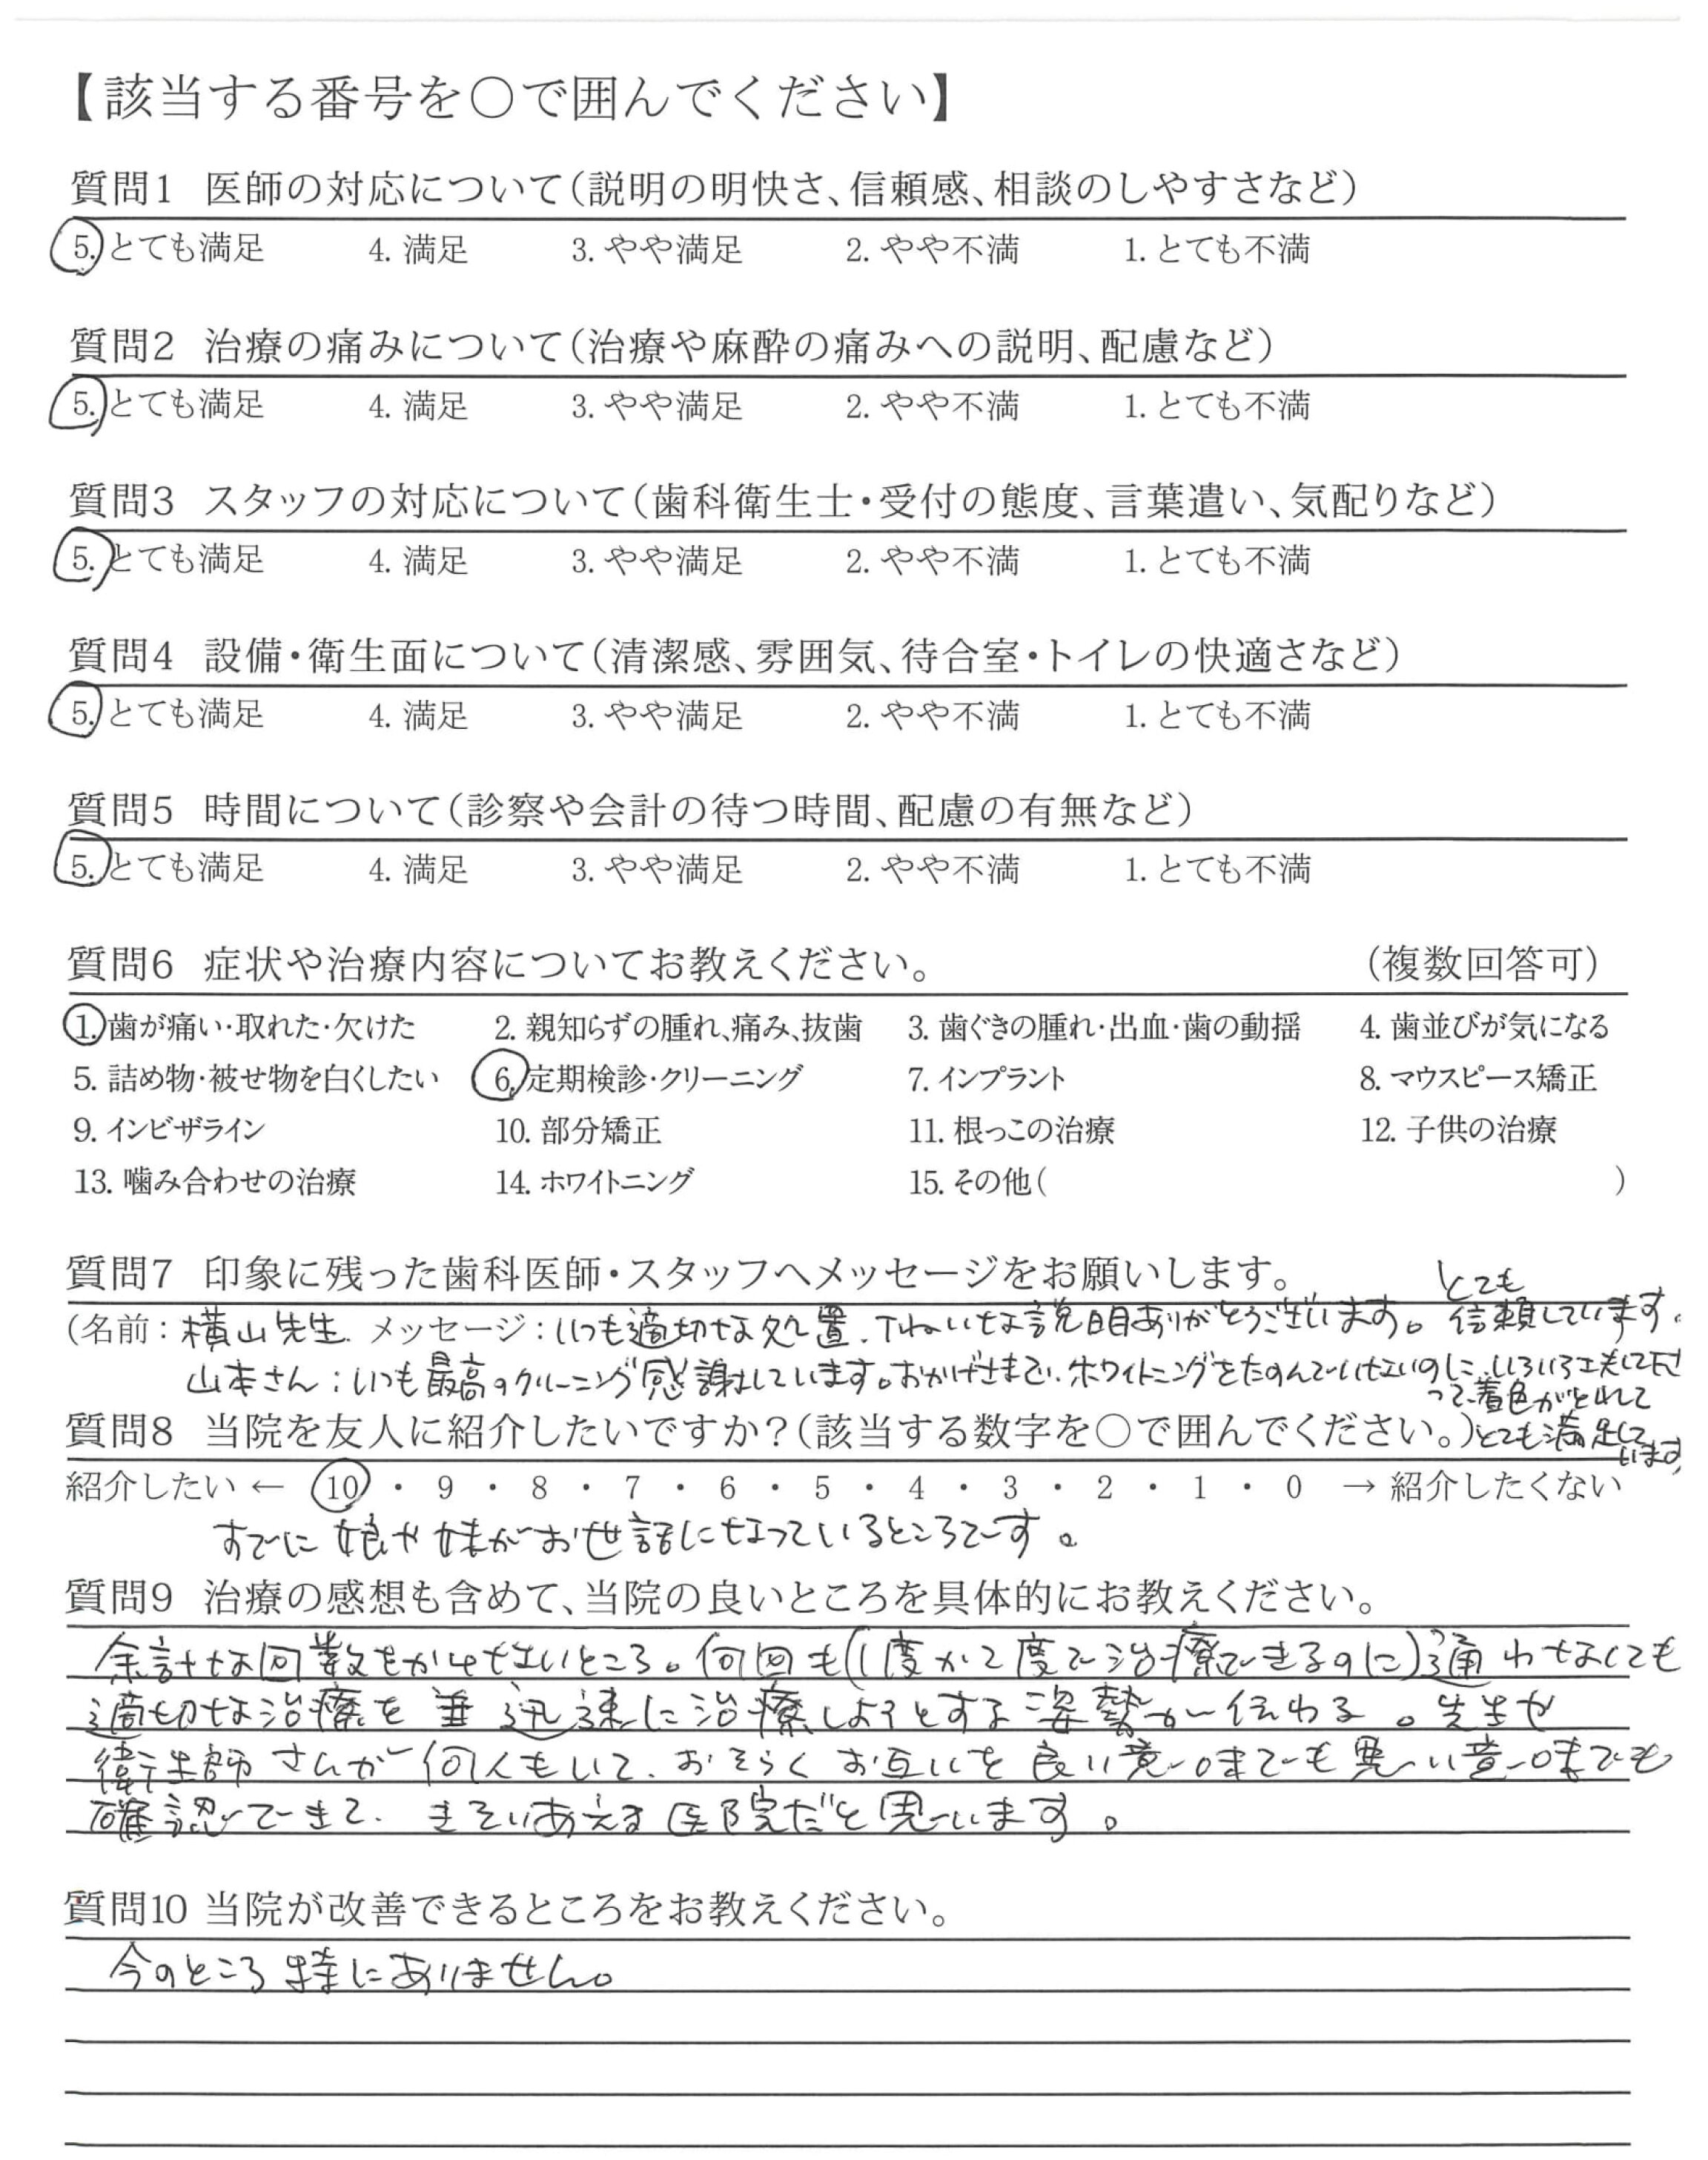 【該当する番号を○で囲んでください】
質問1 医師の対応について(説明の明快さ、信頼感、相談のしやすさなど)
5. とても満足 4. 満足 3. やや満足 2. やや不満 1. とても不満
質問2 治療の痛みについて(治療や麻酔の痛みへの説明、配慮など)
5. とても満足 4. 満足 3. やや満足 2. やや不満 1. とても不満
質問3 スタッフの対応について(歯科衛生士・受付の態度、言葉遣い、気配りなど)
5. とても満足 4. 満足 3. やや満足 2. やや不満 1. とても不満
質問4 設備・衛生面について(清潔感、雰囲気、待合室・トイレの快適さなど)
5. とても満足 4. 満足 3. やや満足 2. やや不満 1. とても不満
質問5 時間について(診察や会計の待つ時間、配慮の有無など)
5. とても満足 4. 満足 3. やや満足 2. やや不満 1. とても不満
質問6 症状や治療内容についてお教えください。 (複数回答可)
1. 歯が痛い・取れた・欠けた 2. 親知らずの腫れ、痛み、抜歯 3. 歯ぐきの腫れ・出血・歯の動揺 4. 歯並びが気になる
5. 詰め物・被せ物を白くしたい 6. 定期検診・クリーニング 7. インプラント 8. マウスピース矯正
9. インビザライン 10. 部分矯正 11. 根っこの治療 12. 子供の治療
13. 噛み合わせの治療 14. ホワイトニング 15. その他( )
質問7 印象に残った歯科医師・スタッフへメッセージをお願いします。
とても
(名前：横山先生. メッセージ：いつも適切な処置、ていねいな説明ありがとうございます。信頼しています。
山本さん：いつも最高のクリーニング感謝しています。おかげさまで、ホワイトニングをたのんでいないのに、いろいろ工夫して下さ
って、着色がとれて
質問8 当院を友人に紹介したいですか？(該当する数字を○で囲んでください。)とても満足して
います
紹介したい ← 10 ・ 9 ・ 8 ・ 7 ・ 6 ・ 5 ・ 4 ・ 3 ・ 2 ・ 1 ・ 0 → 紹介したくない
すでに娘や妹がお世話になっているところです。
質問9 治療の感想も含めて、当院の良いところを具体的にお教えください。
余計な回数をかけないところ。何回も(1度か2度で治療できるのに)通わせなくても
適切な治療を 迅速に治療しようとする姿勢が伝わる。先生や
衛生師さんが何人もいて、おそらくお互いを良い意味でも悪い意味でも
確認できて、きそいあえる医院だと思います。
質問10 当院が改善できるところをお教えください。
今のところ特にありません。